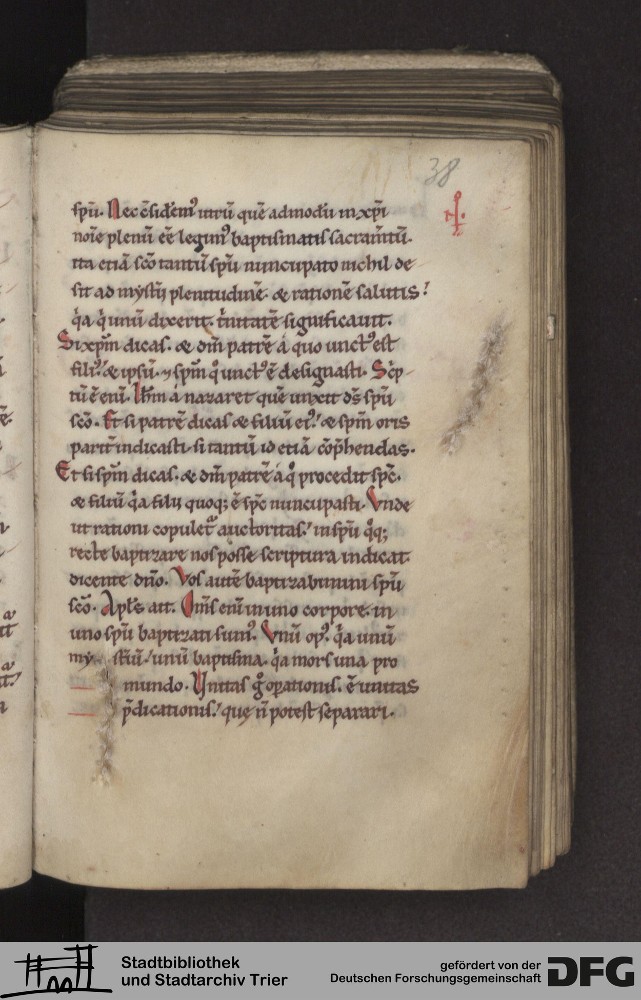 38
spū. Nec cōsidem᾽ utrū quē admodū in xp̄i
noīe plenū eē legim᾽ baptismatis sacram̄tū.
ita etiā sc̄o tantū spū nuncupato nichil de
sit ad mysterii plenitudinē. & rationē salutis?
q̄a q̇ unū dixerit. t̄nitatē significauit.
Si xp̄m dicas. & dm̄ patrē á quo unct᾽ est
fili᾽. & ip̄sū. ⁊ spm̄ q̊ unct᾽ ē designasti. Sc̄p-
tū ē eni. Ihm̄ á nazaret quē unxit ds̄ spū
sc̄o. Et si patrē dicas & filiū ei᾽. & spm̄ oris
parit̄ indicasti. si tantū id etiā cōp̄hendas.
Et si spm̄ dicas. & dm̄ patrē á q̊ procedit spc̄.
& filiū q̄a filii quoq; ē spc̄ nuncupasti. Vnde
ut rationi copulet auctoritas. in spū q̊q;
recte baptizare nos posse scriptura indicat.
dicente dn̄o. Vos autē baptizabimini spū
sc̄o. Apl̄s ait. Om̄s eni in uno corpore. in
uno spū baptizati sum᾽. Vnū op᾽. q̄a unū
my stiū. unū baptisma. q̄a mors una pro
mundo. Vnitas g̊ op̄ationis. ē unitas
p̄dicationis. que n̄ potest separari.
Stadtbibliothek
und Stadtarchiv Trier
gefördert von der
Deutschen Forschungsgemeinschaft
DFG